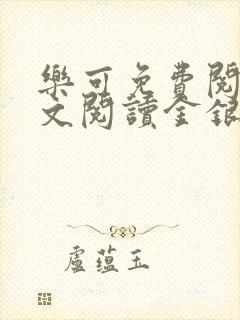 樂可免費閱
文閱讀金銀
盧蘊玉